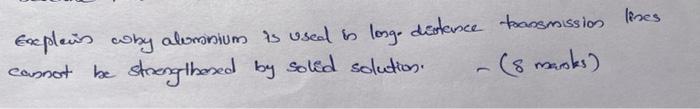 Explain why aluminium is used in long-distance transmission lines
cannot be strengthened by solid solution. - (8 marks)